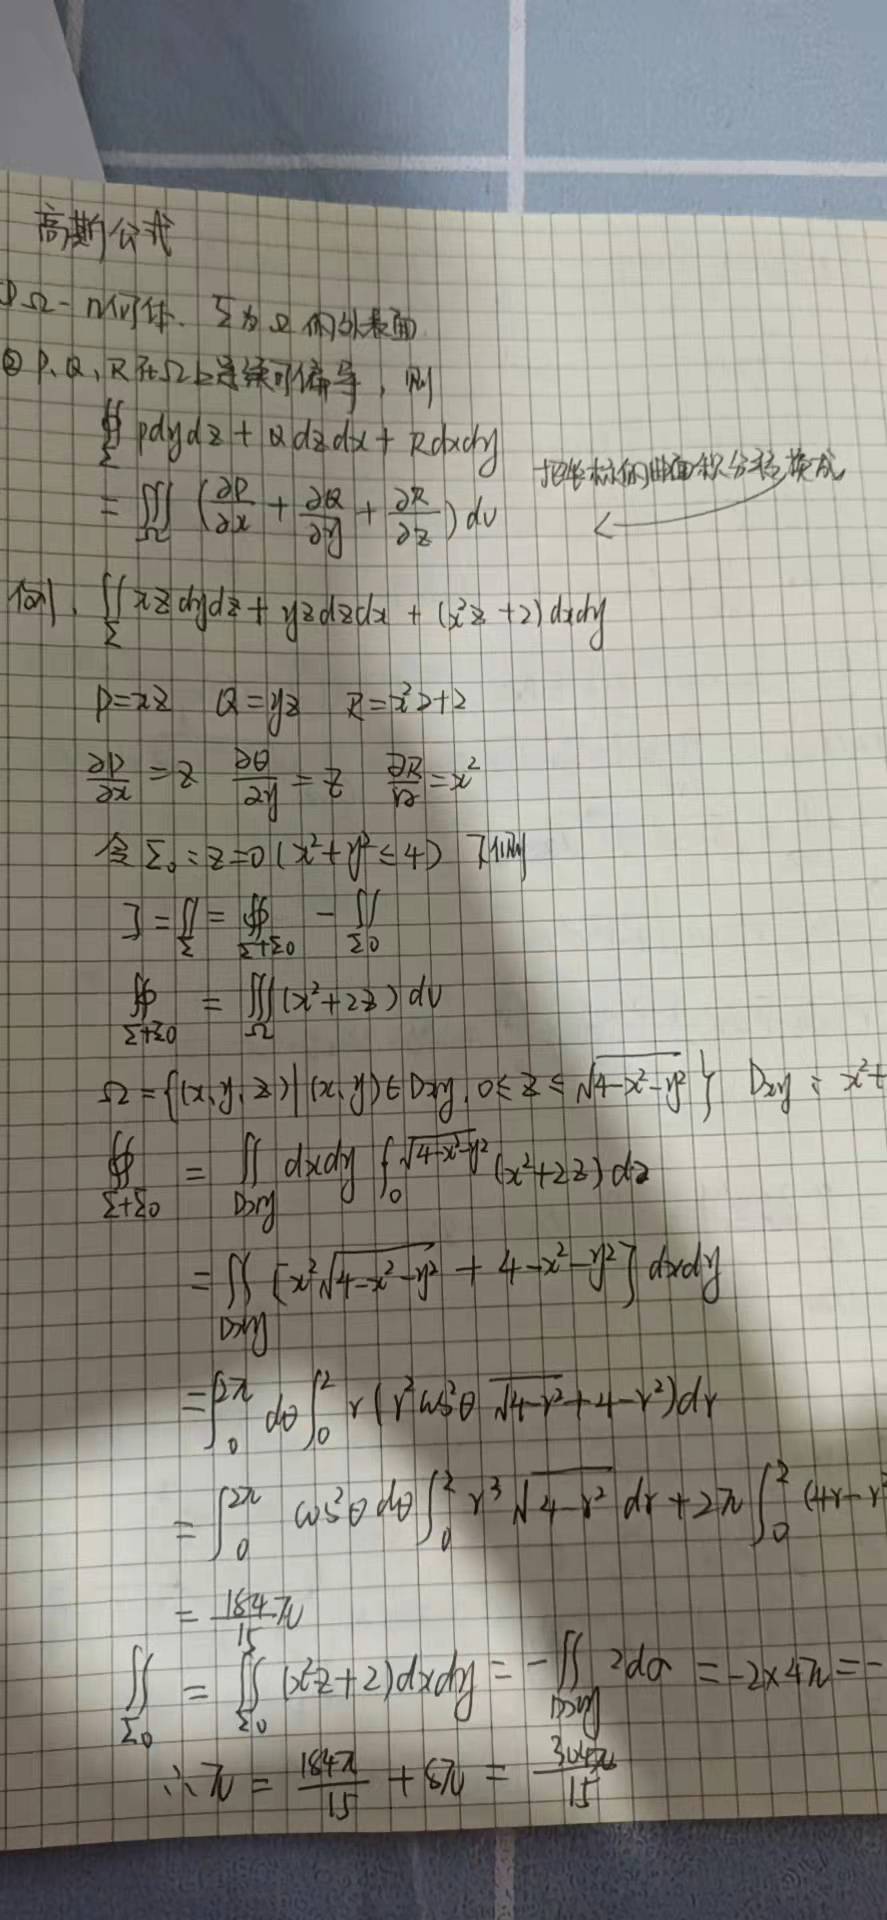 高斯公式
①Ω-几何体. Σ为Ω的外表面
② P、Q、R在Ω上连续可偏导, 则
∯_Σ Pdydz + Qdzdx + Rdxdy
= ∭_Ω (∂P/∂x + ∂Q/∂y + ∂R/∂z) dv
把坐标的曲面积分转换成
例1. ∬_Σ xzdydz + yzdzdx + (x²z+2)dxdy
P=xz Q=yz R=x²z+2
∂P/∂x = z ∂Q/∂y = z ∂R/∂z = x²
令 Σ₀: z=0 (x²+y²≤4)
I = ∬_Σ = ∯_Σ+Σ₀ - ∬_Σ₀
∯_Σ+Σ₀ = ∭_Ω (x²+2z) dv
Ω = {(x,y,z)|(x,y)∈Dxy, 0≤z≤√(4-x²-y²)} Dxy: x²+
∯_Σ+Σ₀ = ∬_Dxy dxdy ∫₀^√(4-x²-y²) (x²+2z) dz
= ∬_Dxy [x²√(4-x²-y²) + 4-x²-y²] dxdy
= ∫₀^2π dθ ∫₀² r(r²cos²θ √(4-r²) + 4-r²)dr
= ∫₀^2π cos²θdθ ∫₀² r³ √(4-r²) dr + 2π ∫₀² (4r-r³
= 184π/15
∬_Σ₀ = ∬_Σ₀ (x²z+2)dxdy = -∬_Dxy 2dσ = -2×4π = -
∴π = 184π/15 + 8π = 304π/15